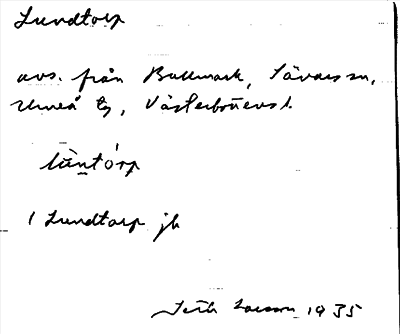 Lundtorp
avs. från Bullmark, Sävars sn,
Umeå tg, Västerbottens l.
lüntórp
1 Lundtorp jb
Larsson 1935